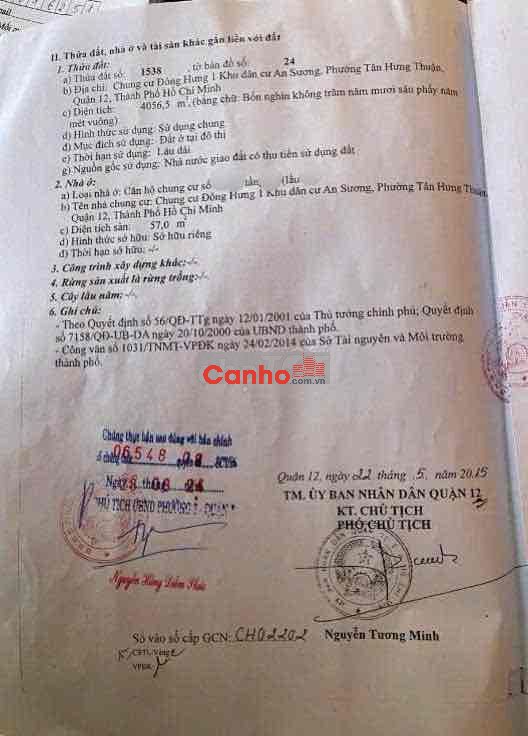 II. Thửa đất, nhà ở và tài sản khác gắn liền với đất
1. Thửa đất:
a) Thửa đất số: 1538 , tờ bản đồ số: 24
b) Địa chỉ: Chung cư Đông Hưng 1 Khu dân cư An Sương, Phường Tân Hưng Thuận,
Quận 12, Thành Phố Hồ Chí Minh
c) Diện tích: 4056,5 m², (bằng chữ: Bốn nghìn không trăm năm mươi sáu phẩy năm
mét vuông)
d) Hình thức sử dụng: Sử dụng chung
đ) Mục đích sử dụng: Đất ở tại đô thị
e) Thời hạn sử dụng: Lâu dài
g) Nguồn gốc sử dụng: Nhà nước giao đất có thu tiền sử dụng đất
2. Nhà ở:
a) Loại nhà ở: Căn hộ chung cư số tầng (lầu
b) Tên nhà chung cư: Chung cư Đông Hưng 1 Khu dân cư An Sương, Phường Tân Hưng Thuận,
Quận 12, Thành Phố Hồ Chí Minh
c) Diện tích sàn: 57,0 m²
d) Hình thức sở hữu: Sở hữu riêng
đ) Thời hạn sở hữu: -/-
3. Công trình xây dựng khác: -/-
4. Rừng sản xuất là rừng trồng: -/-
5. Cây lâu năm: -/-
6. Ghi chú:
- Theo Quyết định số 56/QĐ-TTg ngày 12/01/2001 của Thủ tướng chính phủ; Quyết định
số 7158/QĐ-UB-DA ngày 20/10/2000 của UBND thành phố.
- Công văn số 1031/TNMT-VPĐK ngày 24/02/2014 của Sở Tài nguyên và Môi trường
thành phố.
Canho.com.vn
Chứng thực bản sao đúng với bản chính
Số chứng thực 06548 quyển 08 SCT/BS
Ngày 08 24
PHÓ CHỦ TỊCH UBND PHƯỜNG
Nguyễn Hồng Diễm Phúc
Quận 12, ngày 22 tháng 5 năm 2015
TM. ỦY BAN NHÂN DÂN QUẬN 12
KT. CHỦ TỊCH
PHÓ CHỦ TỊCH
Nguyễn Tương Minh
Số vào sổ cấp GCN: CH02202
VPĐK